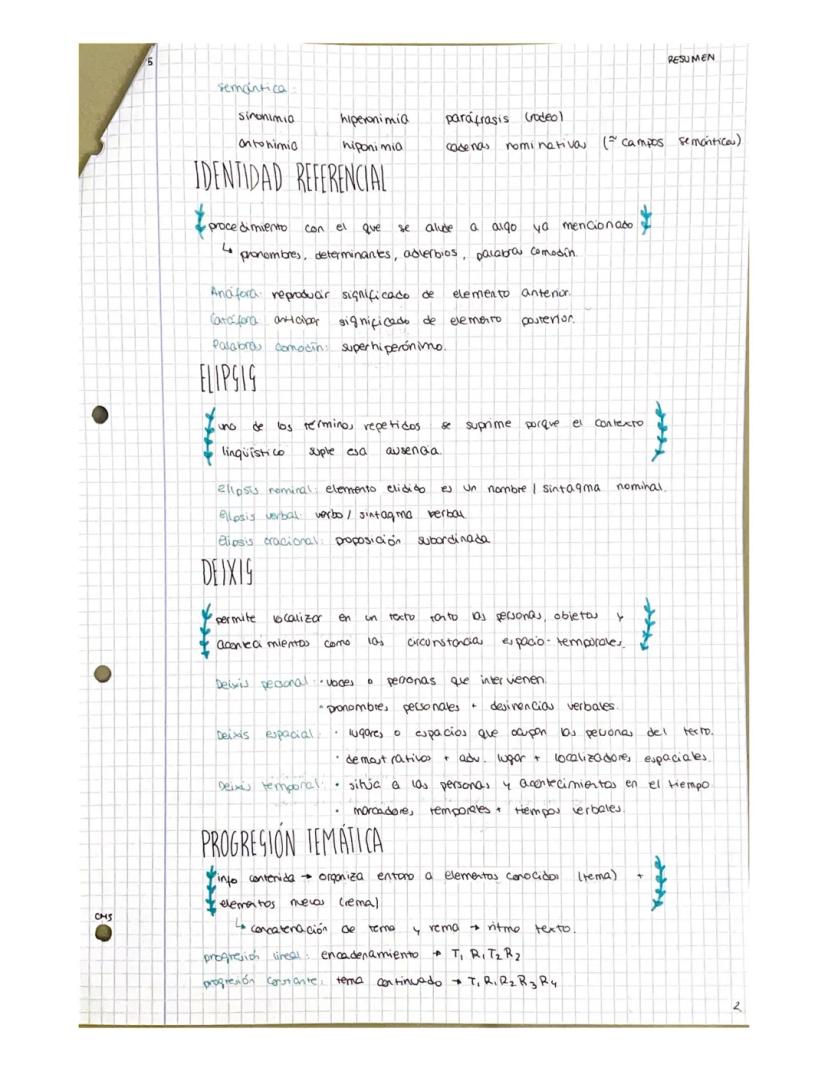 5
RESUMEN
semántica:
sinonimia hiperonimia paráfrasis (rodeo)
antonimia hiponimia cadenas nominativas (≈ campos semánticos)
IDENTIDAD REFERENCIAL
procedimiento con el que se alude a algo ya mencionado
↳ pronombres, determinantes, adverbios, palabra comodín.
Anáfora: reproducir significado de elemento anterior.
Catáfora: anticipar significado de elemento posterior.
Palabras comodín: superhiperónimo.
ELIPSIS
uno de los términos repetidos se suprime porque el contexto
lingüístico suple esa ausencia.
Elipsis nominal: elemento elidido es un nombre / sintagma nominal.
Elipsis verbal: verbo / sintagma verbal
Elipsis oracional: proposición subordinada
DEIXIS
permite localizar en un texto tanto las personas, objetos y
acontecimientos como las circunstancia espacio-temporales.
Deixis personal: · voces o personas que intervienen.
· pronombres personales + desinencias verbales.
Deixis espacial: · lugares o espacios que ocupan las personas del texto.
· demostrativos + adv. lugar + localizadores espaciales.
Deixis temporal: · sitúa a las personas y acontecimientos en el tiempo
· marcadores temporales + tiempos verbales.
PROGRESIÓN TEMÁTICA
info contenida → organiza entorno a elementos conocidos (tema) +
elementos nuevos (rema)
↳ concatenación de tema y rema → ritmo texto.
progresión lineal: encadenamiento → T₁ R₁ T₂ R₂
progresión constante: tema continuado → T₁ R₁ R₂ R₃ R₄
CMS
2